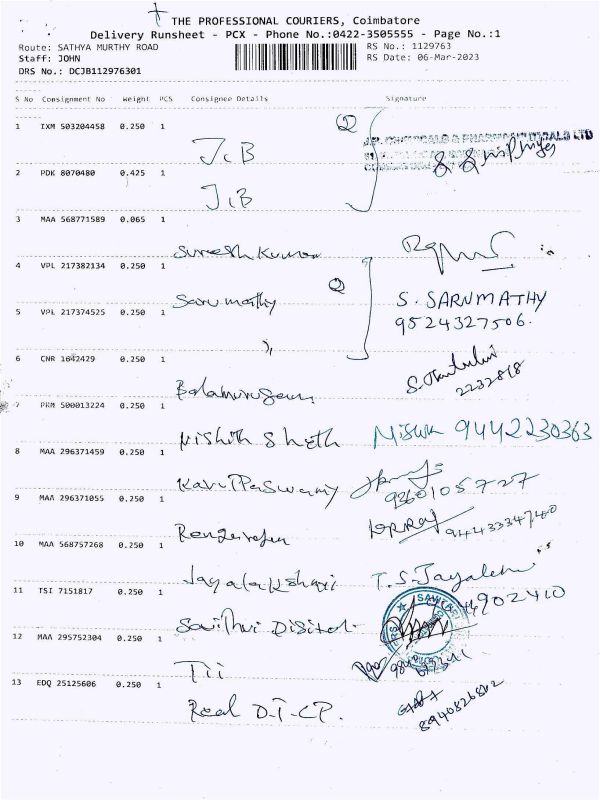 THE PROFESSIONAL COURIERS, Coimbatore
Delivery Runsheet - PCX - Phone No.:0422-3505555 - Page No.:1
Route: SATHYA MURTHY ROAD RS No.: 1129763
Staff: JOHN RS Date: 06-Mar-2023
DRS No.: DCJB112976301
S No Consignment No Weight PCS Consignee Details Signature
1 IXM 503204458 0.250 1
J.C.B
2 PDK 8070480 0.425 1
J.C.B
3 MAA 568771589 0.065 1
Suresh Kumar
4 VPL 217382134 0.250 1
Sarumathy S. SARUMATHY
5 VPL 217374525 0.250 1
9524327506.
6 CNR 1642429 0.250 1
Balamurugan 2232818
7 PRM 500013224 0.250 1
Nishith Sheth 9442230363
8 MAA 296371459 0.250 1
Karuppaswamy 9360105727
9 MAA 296371055 0.250 1
10 MAA 568757268 0.250 1
Jayalakshmi T.S.Jayalakshmi
11 TSI 7151817 0.250 1
12 MAA 295752304 0.250 1
Tii
13 EDQ 25125606 0.250 1
Real D.T.CP. 8940826802